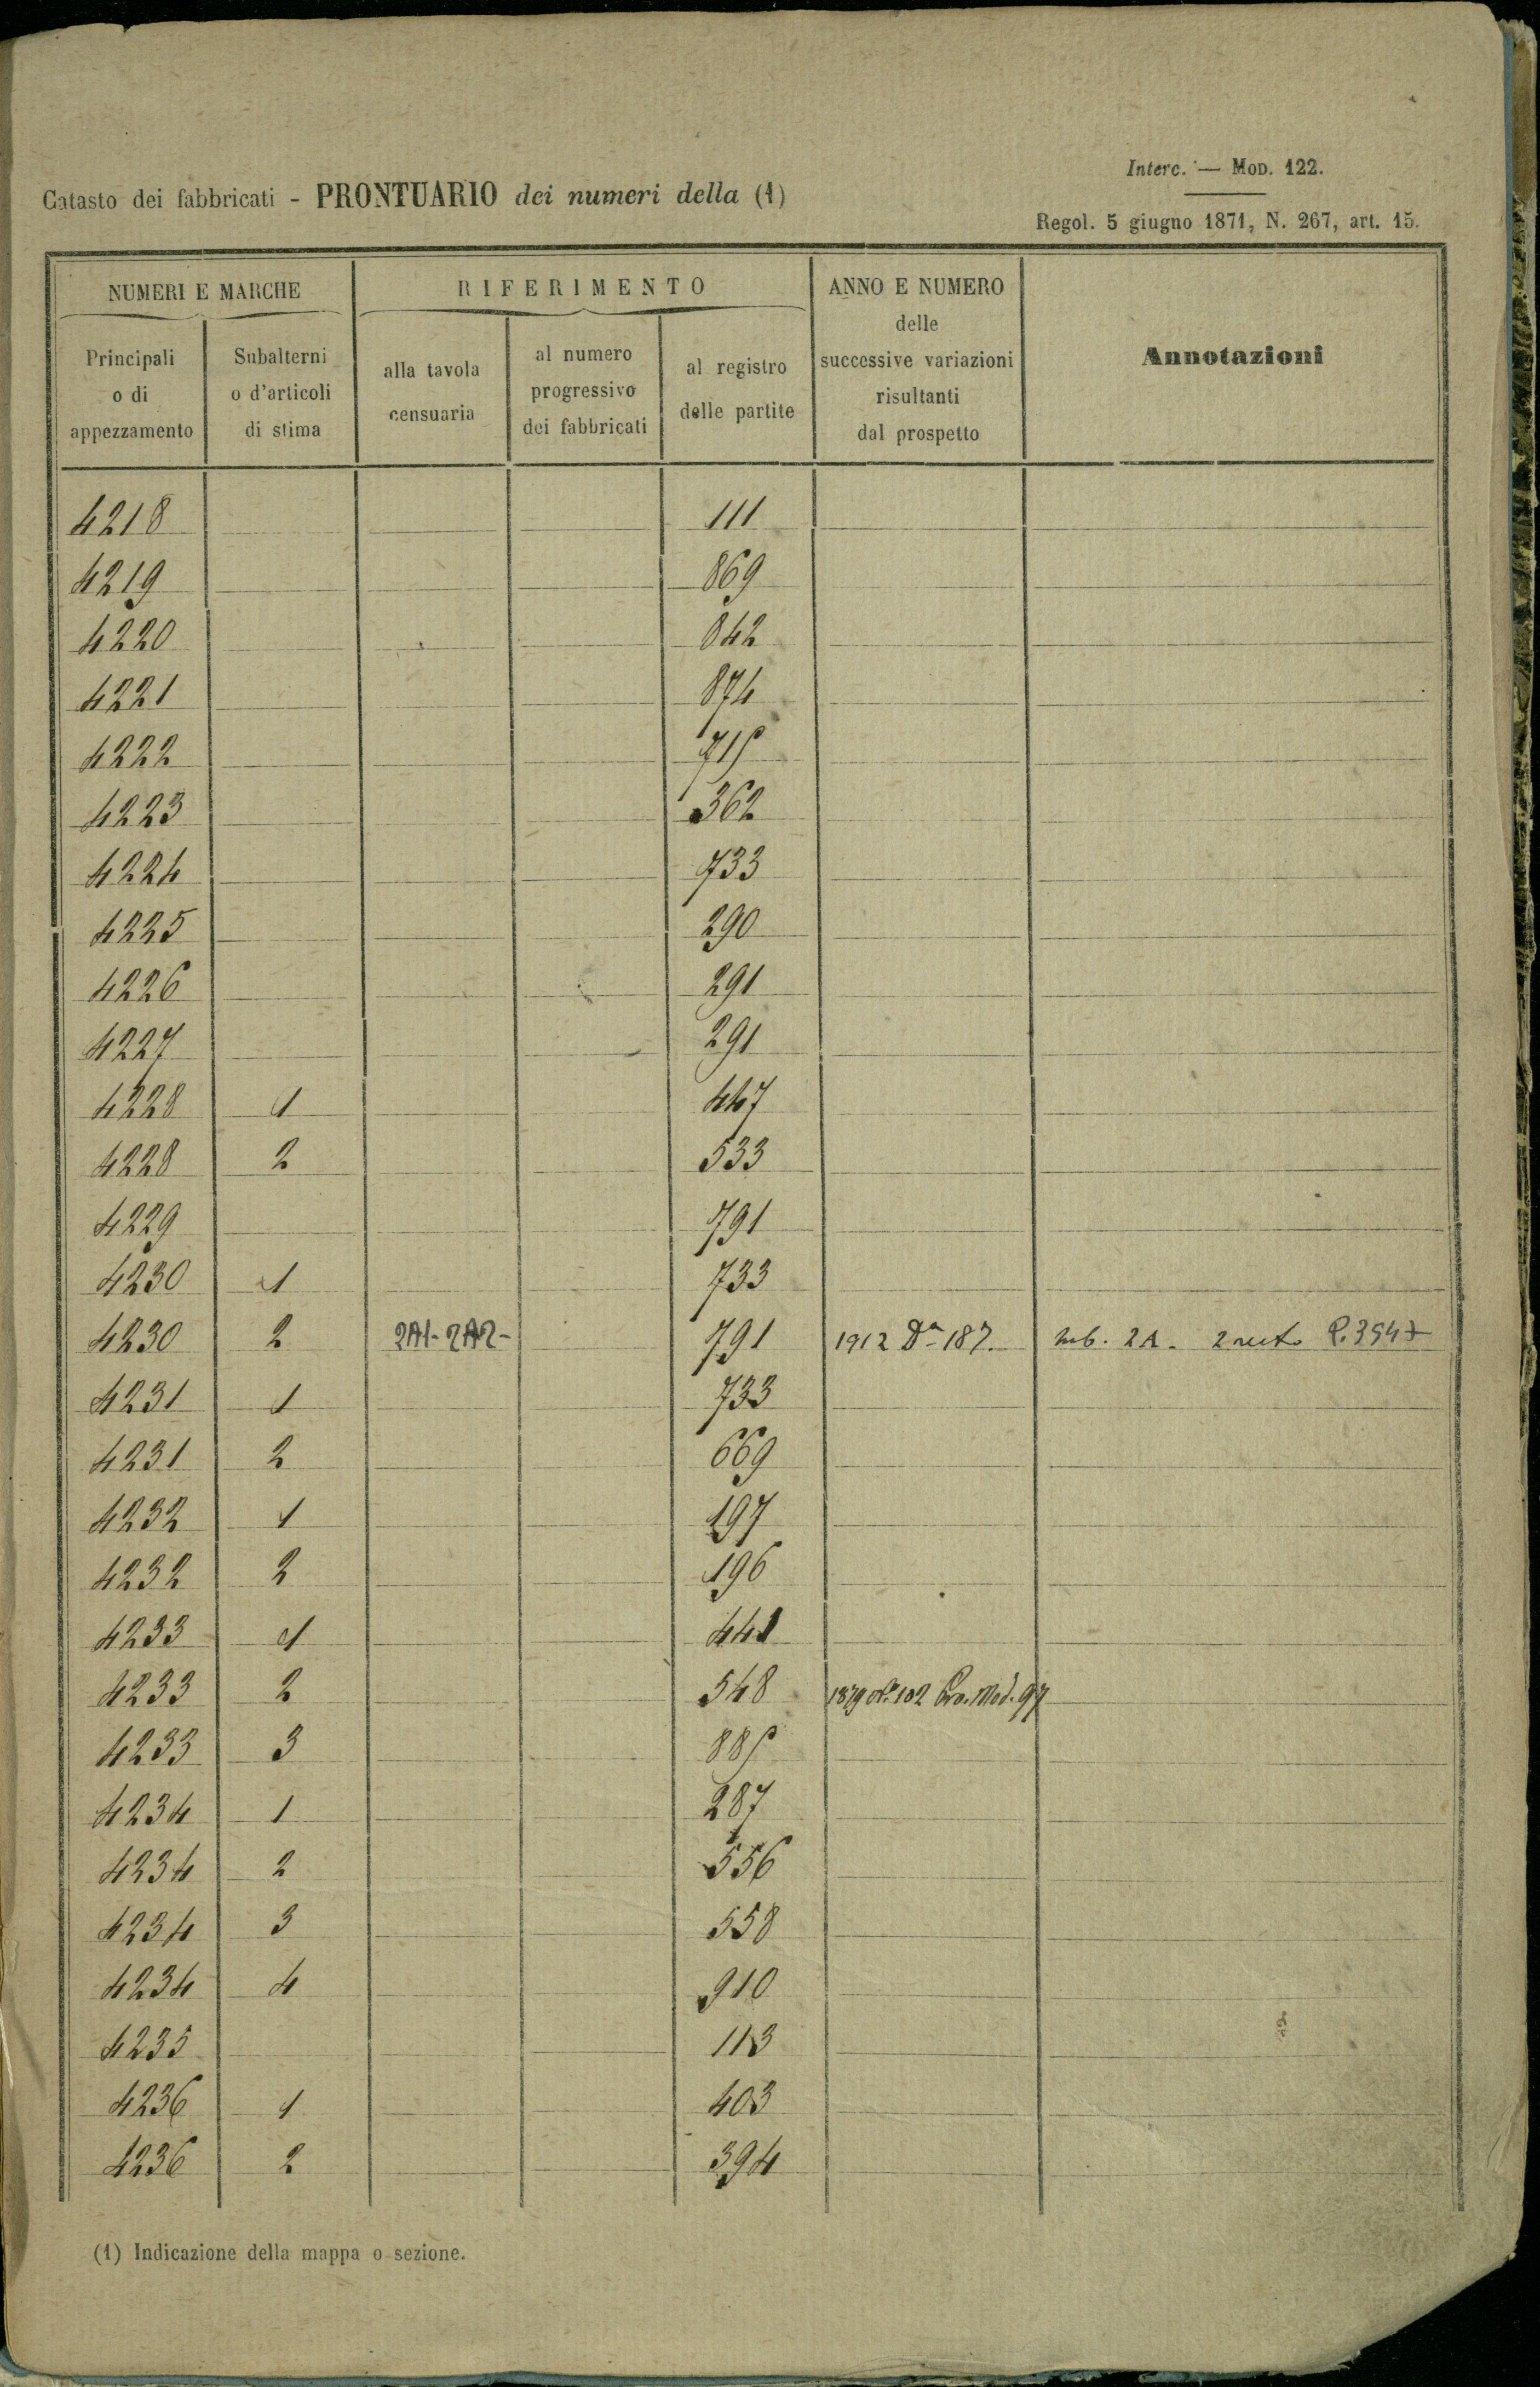 Interc. — MOD. 122.
Catasto dei fabbricati - PRONTUARIO dei numeri della (1)
Regol. 5 giugno 1871, N. 267, art. 15.
NUMERI E MARCHE
RIFERIMENTO
ANNO E NUMERO
delle
successive variazioni
risultanti
dal prospetto
Annotazioni
Principali
o di
appezzamento
Subalterni
o d'articoli
di stima
alla tavola
censuaria
al numero
progressivo
dei fabbricati
al registro
delle partite
4218 111
4219 869
4220 842
4221 874
4222 715
4223 362
4224 733
4225 290
4226 291
4227 291
4228 1 447
4228 2 533
4229 791
4230 1 733
4230 2 2A1-2A2- 791 1912 Da 187. sub. 2A. 2 P. 3547
4231 1 733
4231 2 669
4232 1 197
4232 2 196
4233 1 441
4233 2 548 1879 No 102 Mod. 97
4233 3 885
4234 1 287
4234 2 556
4234 3 558
4234 4 910
4235 113
4236 1 403
4236 2 394
(1) Indicazione della mappa o sezione.